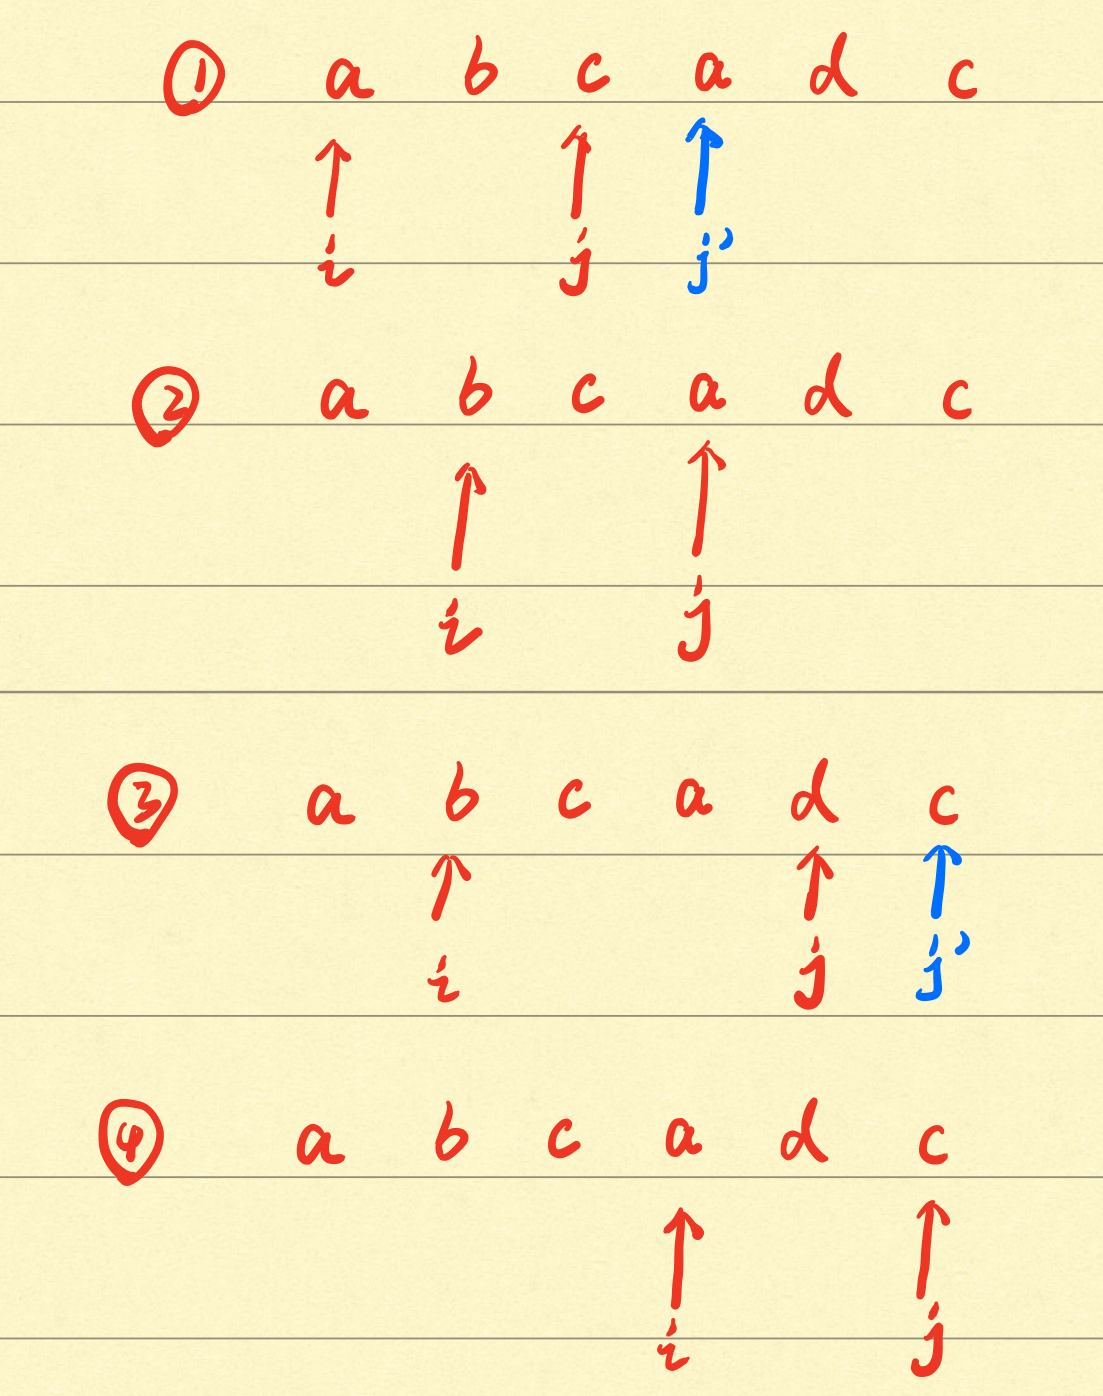 ① a b c a d c
i j j'
② a b c a d c
i j
③ a b c a d c
i j j'
④ a b c a d c
i j